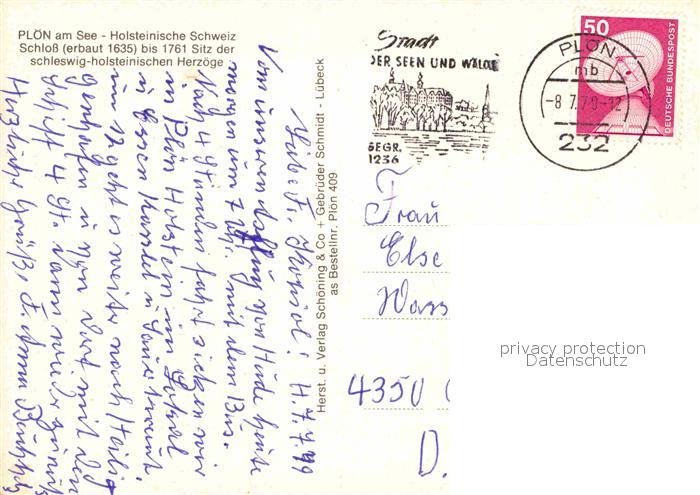 PLÖN am See - Holsteinische Schweiz
Schloß (erbaut 1635) bis 1761 Sitz der
schleswig-holsteinischen Herzöge
Stadt
DER SEEN UND WÄLDER
GEGR.
1236
PLÖN
mb
-8.7.79-12
232
50
DEUTSCHE BUNDESPOST
Herst. u. Verlag Schöning & Co + Gebrüder Schmidt - Lübeck
as Bestellnr. Plön 409
Liebe Fr.
Von unserem Ausflug von heute
morgen um 7 Uhr mit dem Bus.
Nach 4 Stunden fahrt sitzen wir
in Plön Holstein im Lokal
u Essen Kassler u Sauerkraut.
um 12 geht es weiter nach Heilig
genhafen u von dort mit den
Schiff 4 St. dann wieder zurück
Herzliche Grüße
Frau
Else
Wass
4350
D.
privacy protection
Datenschutz